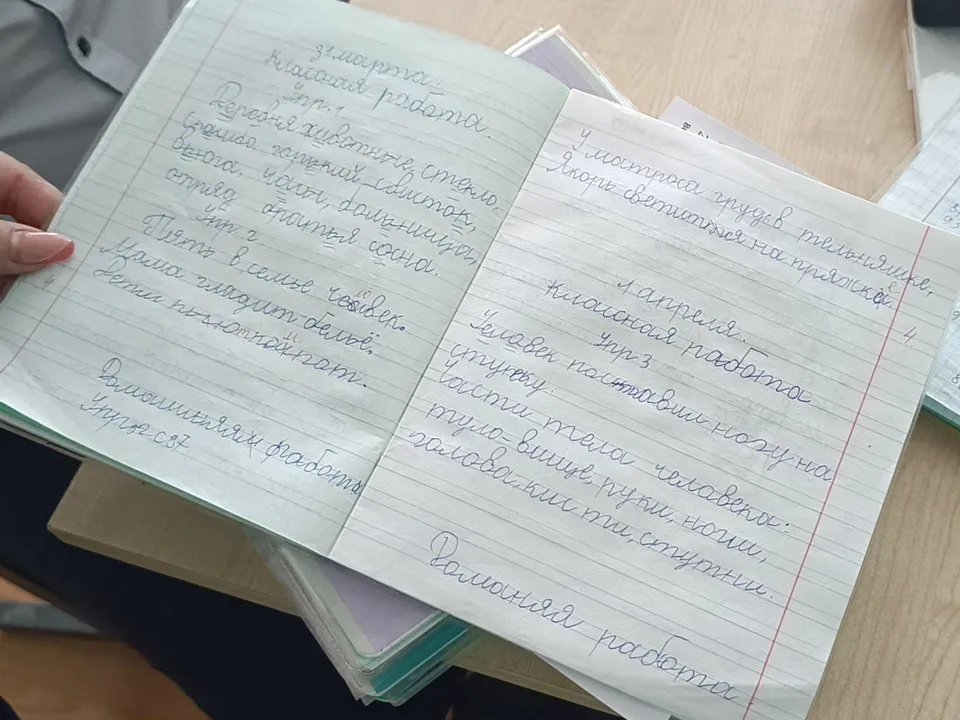 31 марта.
Классная работа.
Упр. 1
Деревня животные, стекло,
спасибо, горький, свисток,
вьюга, чайн, больница,
отряд, платья сосна.
Упр. 2
Пять в семье человек.
Мама гладит бельё.
Дети пьют компот.
Домашняя работа
Упр. 2 с 87
У матроса грудь в тельняшке,
Якорь светится на пряжке.
1 апреля.
Классная работа
Упр 3
Человек поставил ногу на
ступку.
Части тела человека:
туло-вище, руки, ноги,
голова, кис ти, ступни.
Доманяя работа